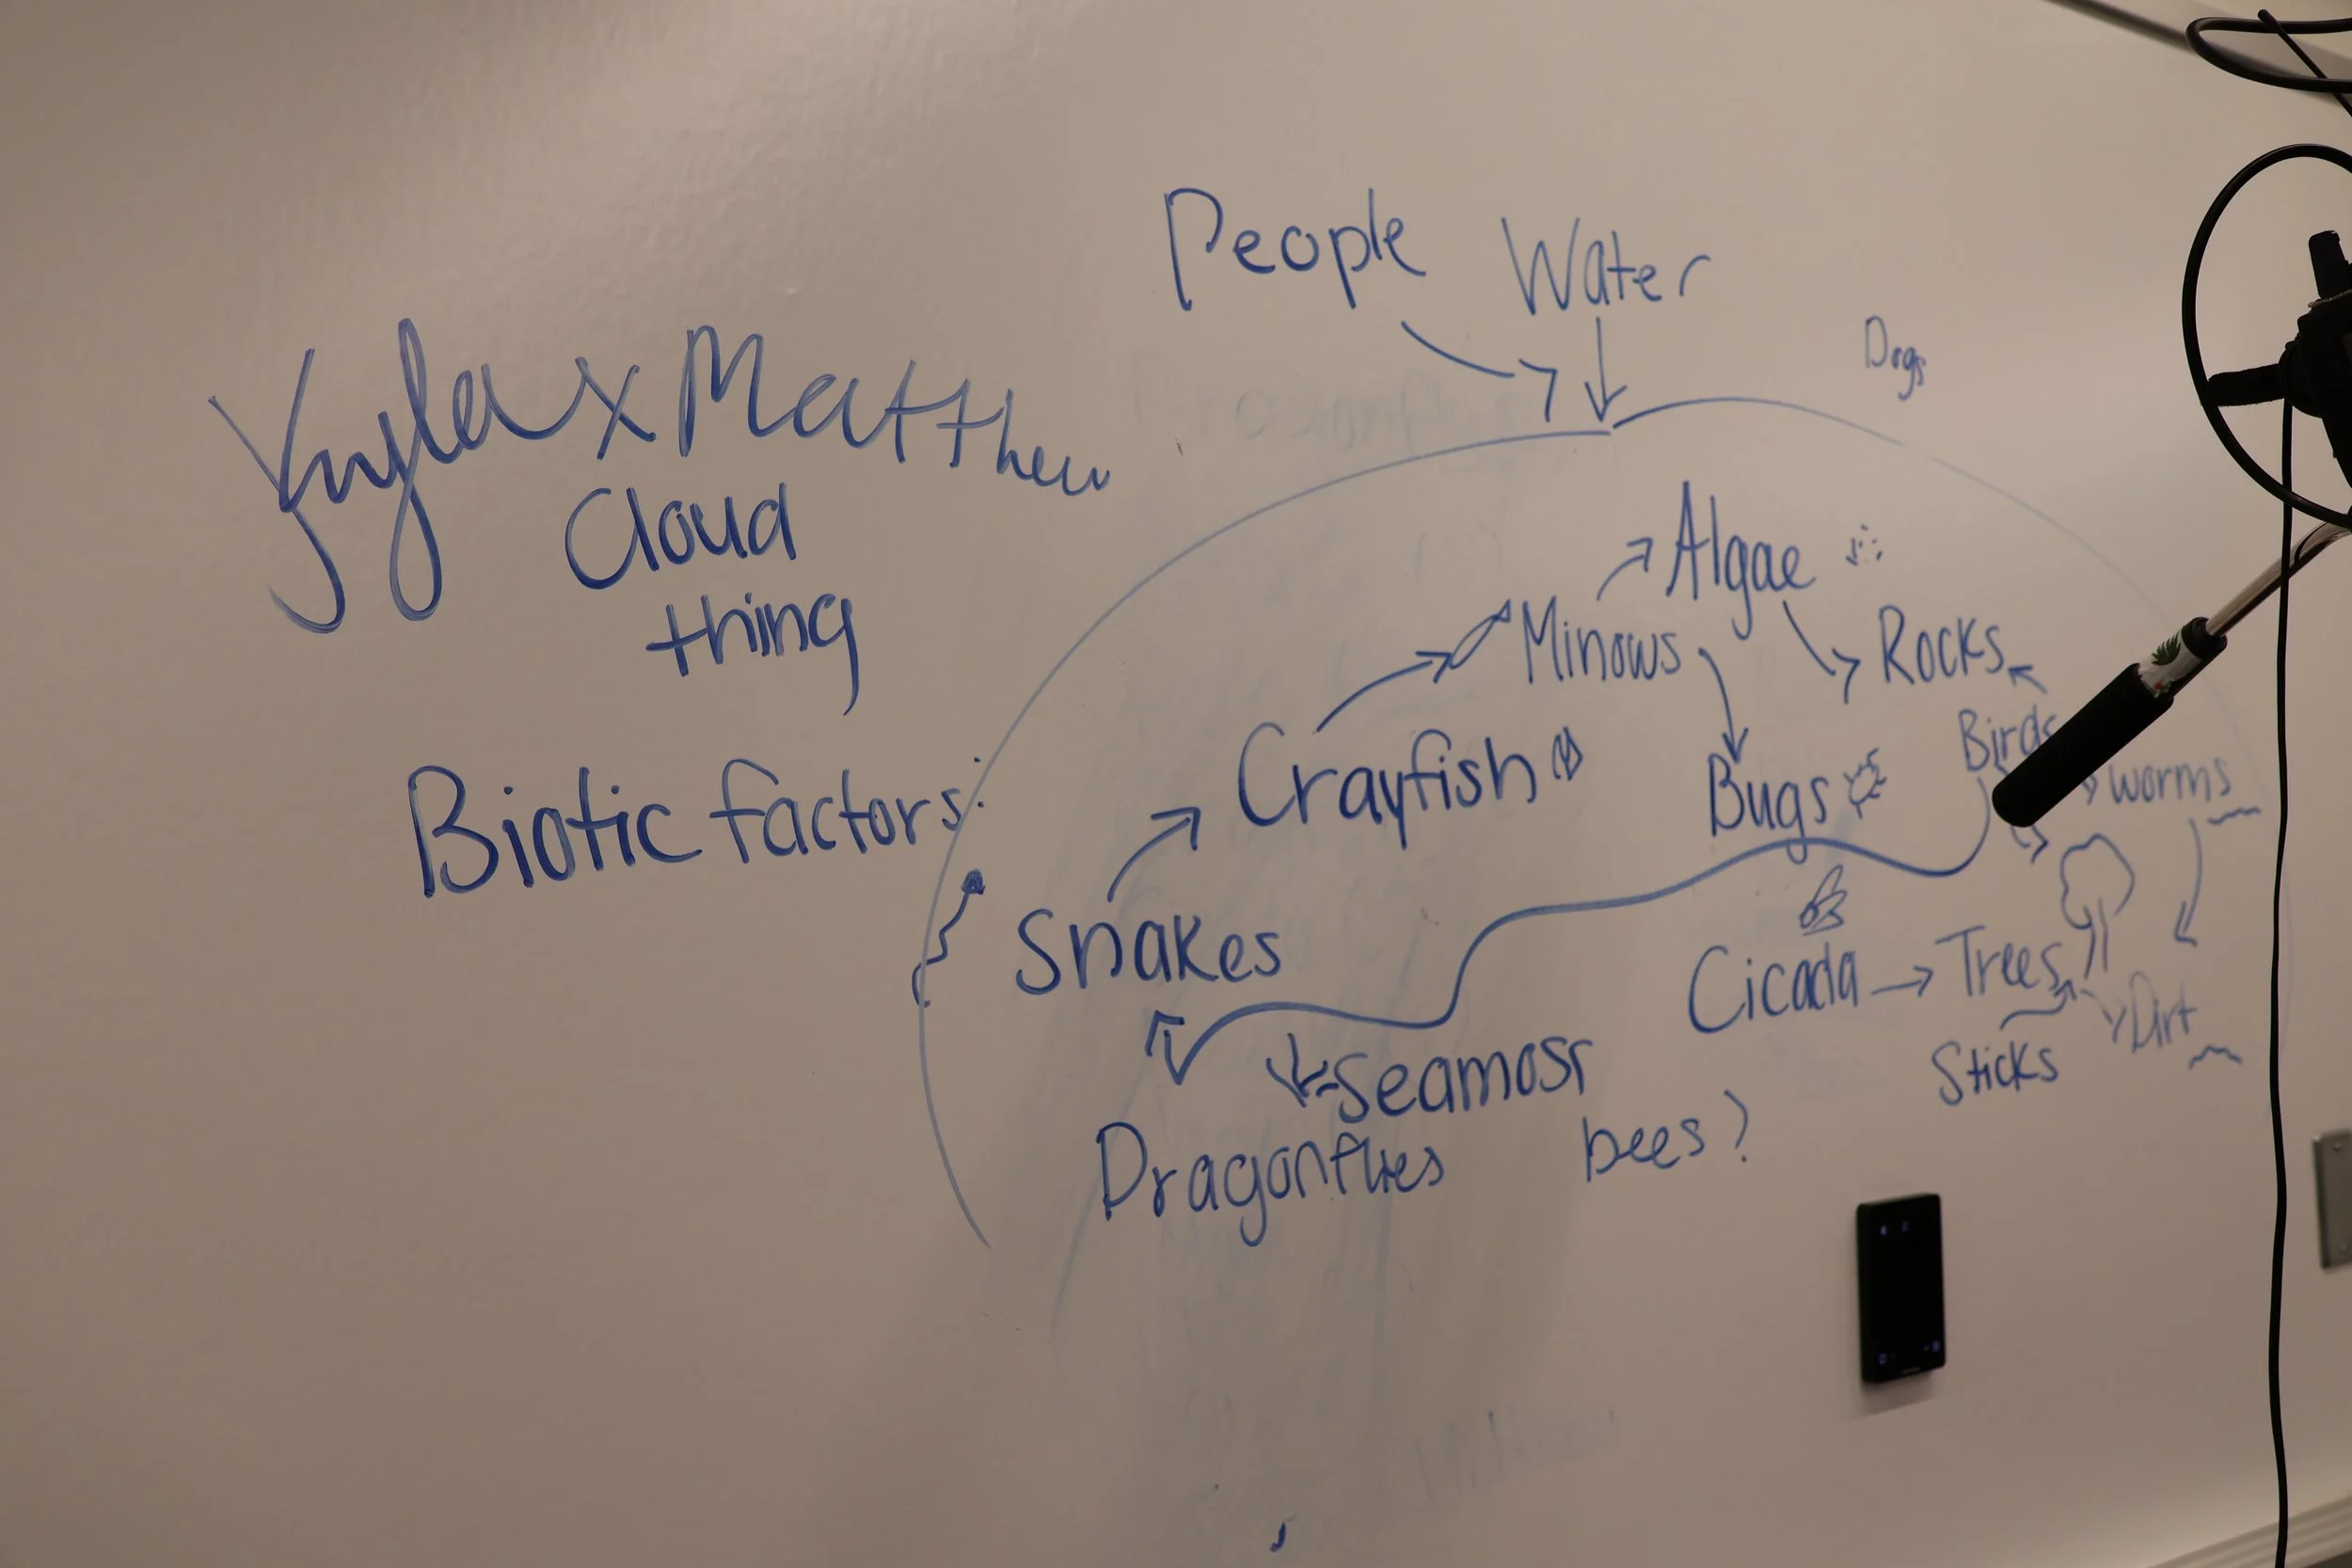 Kyla x Matthew
Cloud
thing
Biotic factors:
People Water
Dogs
Algae
Minows Rocks
Crayfish Bugs Birds worms
Snakes Cicada Trees
Dirt
Seamoss Sticks
Dragonflies bees?